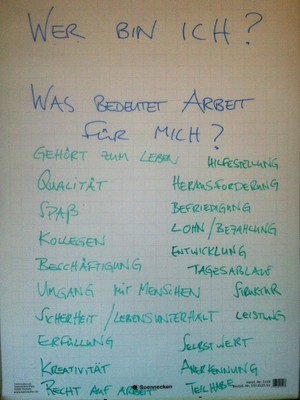 WER BIN ICH?
WAS BEDEUTET ARBEIT
FÜR MICH?
GEHÖRT ZUM LEBEN
HILFESTELLUNG
QUALITÄT
HERAUSFORDERUNG
SPAß
BEFRIEDIGUNG
KOLLEGEN
LOHN/BEZAHLUNG
BESCHÄFTIGUNG
ENTWICKLUNG
TAGESABLAUF
UMGANG MIT MENSCHEN
STRUKTUR
SICHERHEIT/LEBENSUNTERHALT
LEISTUNG
ERFÜLLUNG
SELBSTWERT
KREATIVITÄT
ANERKENNUNG
RECHT AUF ARBEIT
TEILHABE
Soennecken